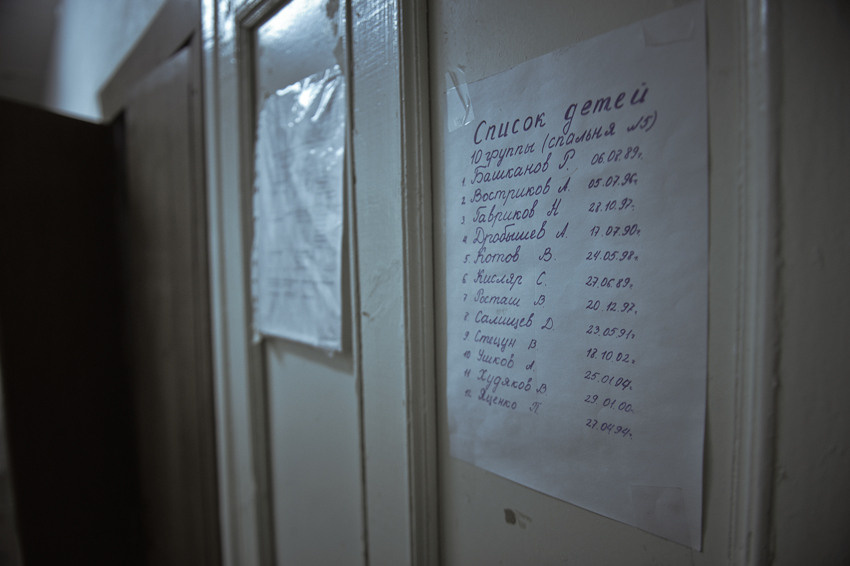 Список детей
10 группы (спальня №5)
1 Башканов Р. 06.07.89г.
2 Востриков А. 05.07.96г.
3 Гавриков Н 28.10.97г.
4 Дробышев А. 17.07.90г.
5 Котов В. 24.05.98г.
6 Кисляр С. 27.06.89г.
7 Росташ В 20.12.97г.
8 Салищев Д 23.05.91г.
9 Стецун В 18.10.02г.
10 Ушков А. 25.01.04г.
11 Худяков В 29.01.00г.
12 Яценко П 27.04.94г.